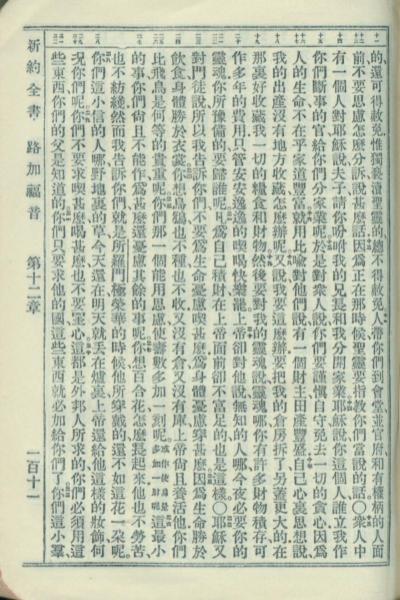 的還可得赦免惟獨褻瀆聖靈的總不得赦免人帶你們到會堂並官府和有權柄的人面
前不要思慮怎麼分訴說甚麼話因爲正在那時候聖靈要指教你們當說的話〇衆人中
有一個人對耶穌說夫子請你吩咐我的兄長和我分開家業耶穌說你這個人誰立我作
你們斷事的官給你們分家業呢於是對衆人說你們要謹慎自守免去一切的貪心因爲
人的生命不在乎家道豐富就用比喻對他們說有一個財主田產豐盛自己心裏思想說
我的出產沒有地方收藏怎麼辦呢又說我要這麼辦要把我的倉房拆了另蓋更大的在
那裏好收藏我一切的糧食和財物然後要對我的靈魂說靈魂哪你有許多財物積存可
作多年的費用只管安安逸逸的喫喝快樂罷上帝卻對他說無知的人哪今夜必要你的
靈魂你所豫備的要歸誰呢凡爲自己積財在上帝面前卻不富足的也是這樣〇耶穌又
對門徒說所以我告訴你們不要爲生命憂慮喫甚麼爲身體憂慮穿甚麼因爲生命勝於
飲食身體勝於衣裳你想烏鴉也不種也不收又沒有倉又沒有庫上帝尚且養活他你們
比飛鳥是何等的貴重呢你們那一個能用思慮使壽數多加一刻呢或作使身量多加一肘呢這最小
的事你們尚且不能作爲甚麼還憂慮其餘的事呢你想百合花怎麼長起來他也不勞苦
也不紡綫然而我告訴你們就是所羅門極榮華的時候他所穿戴的還不如這花一朵呢
你們這小信的人哪野地裏的草今天還在明天就丟在爐裏上帝還給他這樣的妝飾何
況你們呢你們不要求喫甚麼喝甚麼也不要罣心這都是外邦人所求的你們必須用這
些東西你們的父是知道的你們只要求他的國這些東西就必加給你們了你們這小羣
新約全書 路加福音 第十二章 一百十一